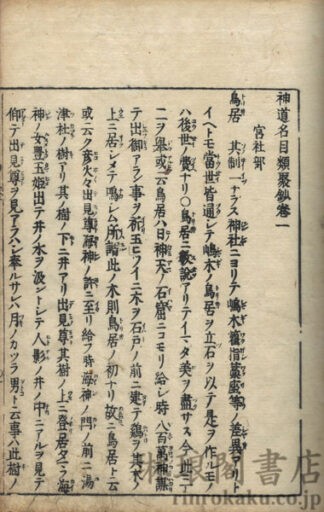 神道名目類聚鈔卷一
宮社部
鳥居 其制一ナラス神社ニヨリテ嶋木 藁座等ノ差異アリト
イヘトモ當世皆通シテ嶋木ノ鳥居ヲ立石ヲ以テ是ヲ作レモ
ハ後世ノ ナリ〇鳥居ニ數說アリテイマタ美ヲ盡サス今此
二ヲ擧 云鳥居ハ日神天ノ石窟ニコモリ給シ時八百萬神謀
テ出御アラン事ヲ祈玉ヒ ノイニ木ヲ石戸ノ前ニ建テ鷄ヲ其木ノ
上ニ居シメテ鳴シム所謂此ノ木則鳥居ノ初ナリ故ニ鳥居ト云
或云ク彦火々出見尊海神ノ許ニ至リ給フ時海神ノ門ノ前ニ湯
津杜ノ樹アリ其樹ノ下ニ井アリ出見尊其樹ノ上ニ登居タマフ海
神ノ女豊玉姫出テ井ノ水ヲ汲ントシテ人影ノ井ノ中ニアルヲ見テ
仰テ出見尊ヲ見アラハシ奉ルサレハ月ノカツラ男ト云事ハ此樹ノ
琳琅閣書店
rinrokaku.co.jp